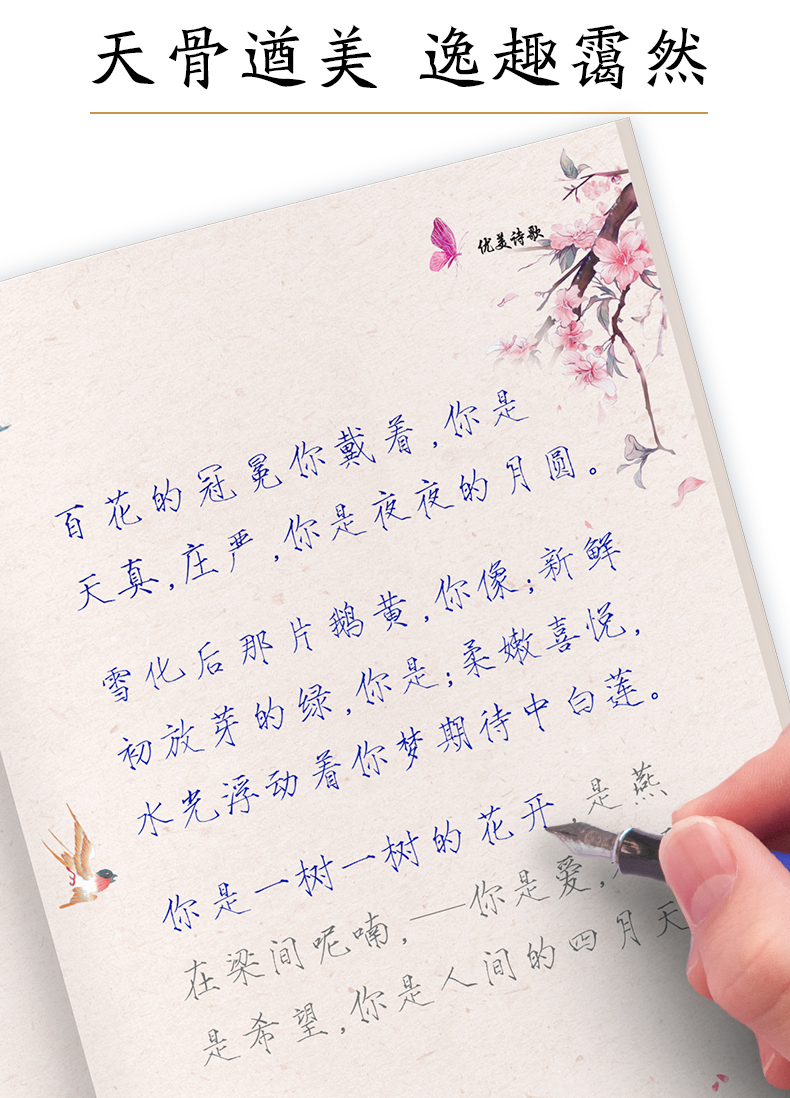 天骨遒美 逸趣霭然
优美诗歌
百花的冠冕你戴着,你是
天真,庄严,你是夜夜的月圆。
雪化后那片鹅黄,你像;新鲜
初放芽的绿,你是;柔嫩喜悦,
水光浮动着你梦期待中白莲。
你是一树一树的花开,是燕
在梁间呢喃,——你是爱,
是希望,你是人间的四月天